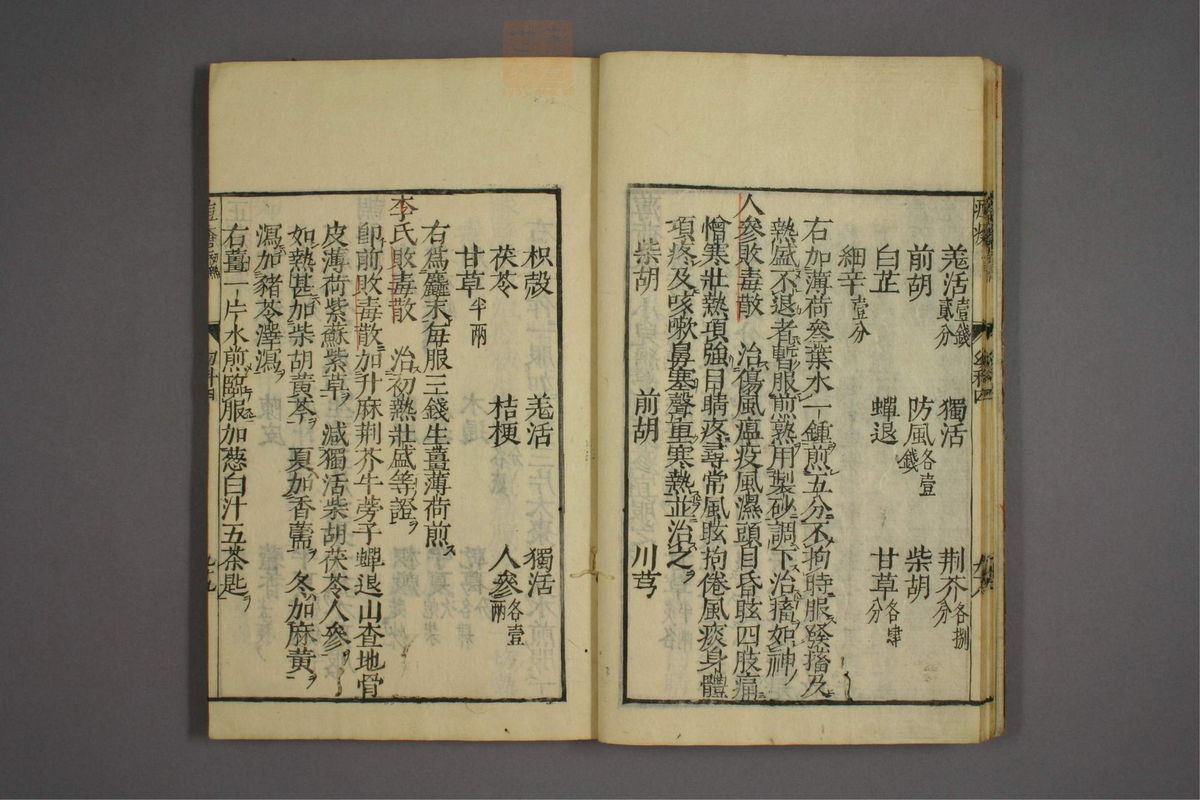 羌活壹錢貳分 獨活 荆芥各捌分
前胡 防風各壹錢 柴胡
白芷 蟬退 甘草各肆分
細辛壹分
右加薄荷叄葉水一鍾煎五分不拘時服發搐及
熱盛不退者暫服煎熟用製砂調下治搐如神
人參敗毒散 治傷風瘟疫風濕頭目昏眩四肢痛
憎寒壯熱項強目睛疼尋常風眩拘倦風痰身體
項疼及咳嗽鼻塞聲重寒熱並治之
柴胡 前胡 川芎
枳殼 羌活 獨活
茯苓 桔梗 人參各壹兩
甘草半兩
右爲麤末每服三錢生薑薄荷煎
李氏敗毒散 治初熱壯盛等證
卽前敗毒散加升麻荆芥牛蒡子蟬退山查地骨
皮薄荷紫蘇紫草 減獨活柴胡茯苓人參
如熱甚加柴胡黃芩 夏加香薷 冬加麻黃
瀉加豬苓澤瀉
右薑一片水煎臨服加葱白汁五茶匙